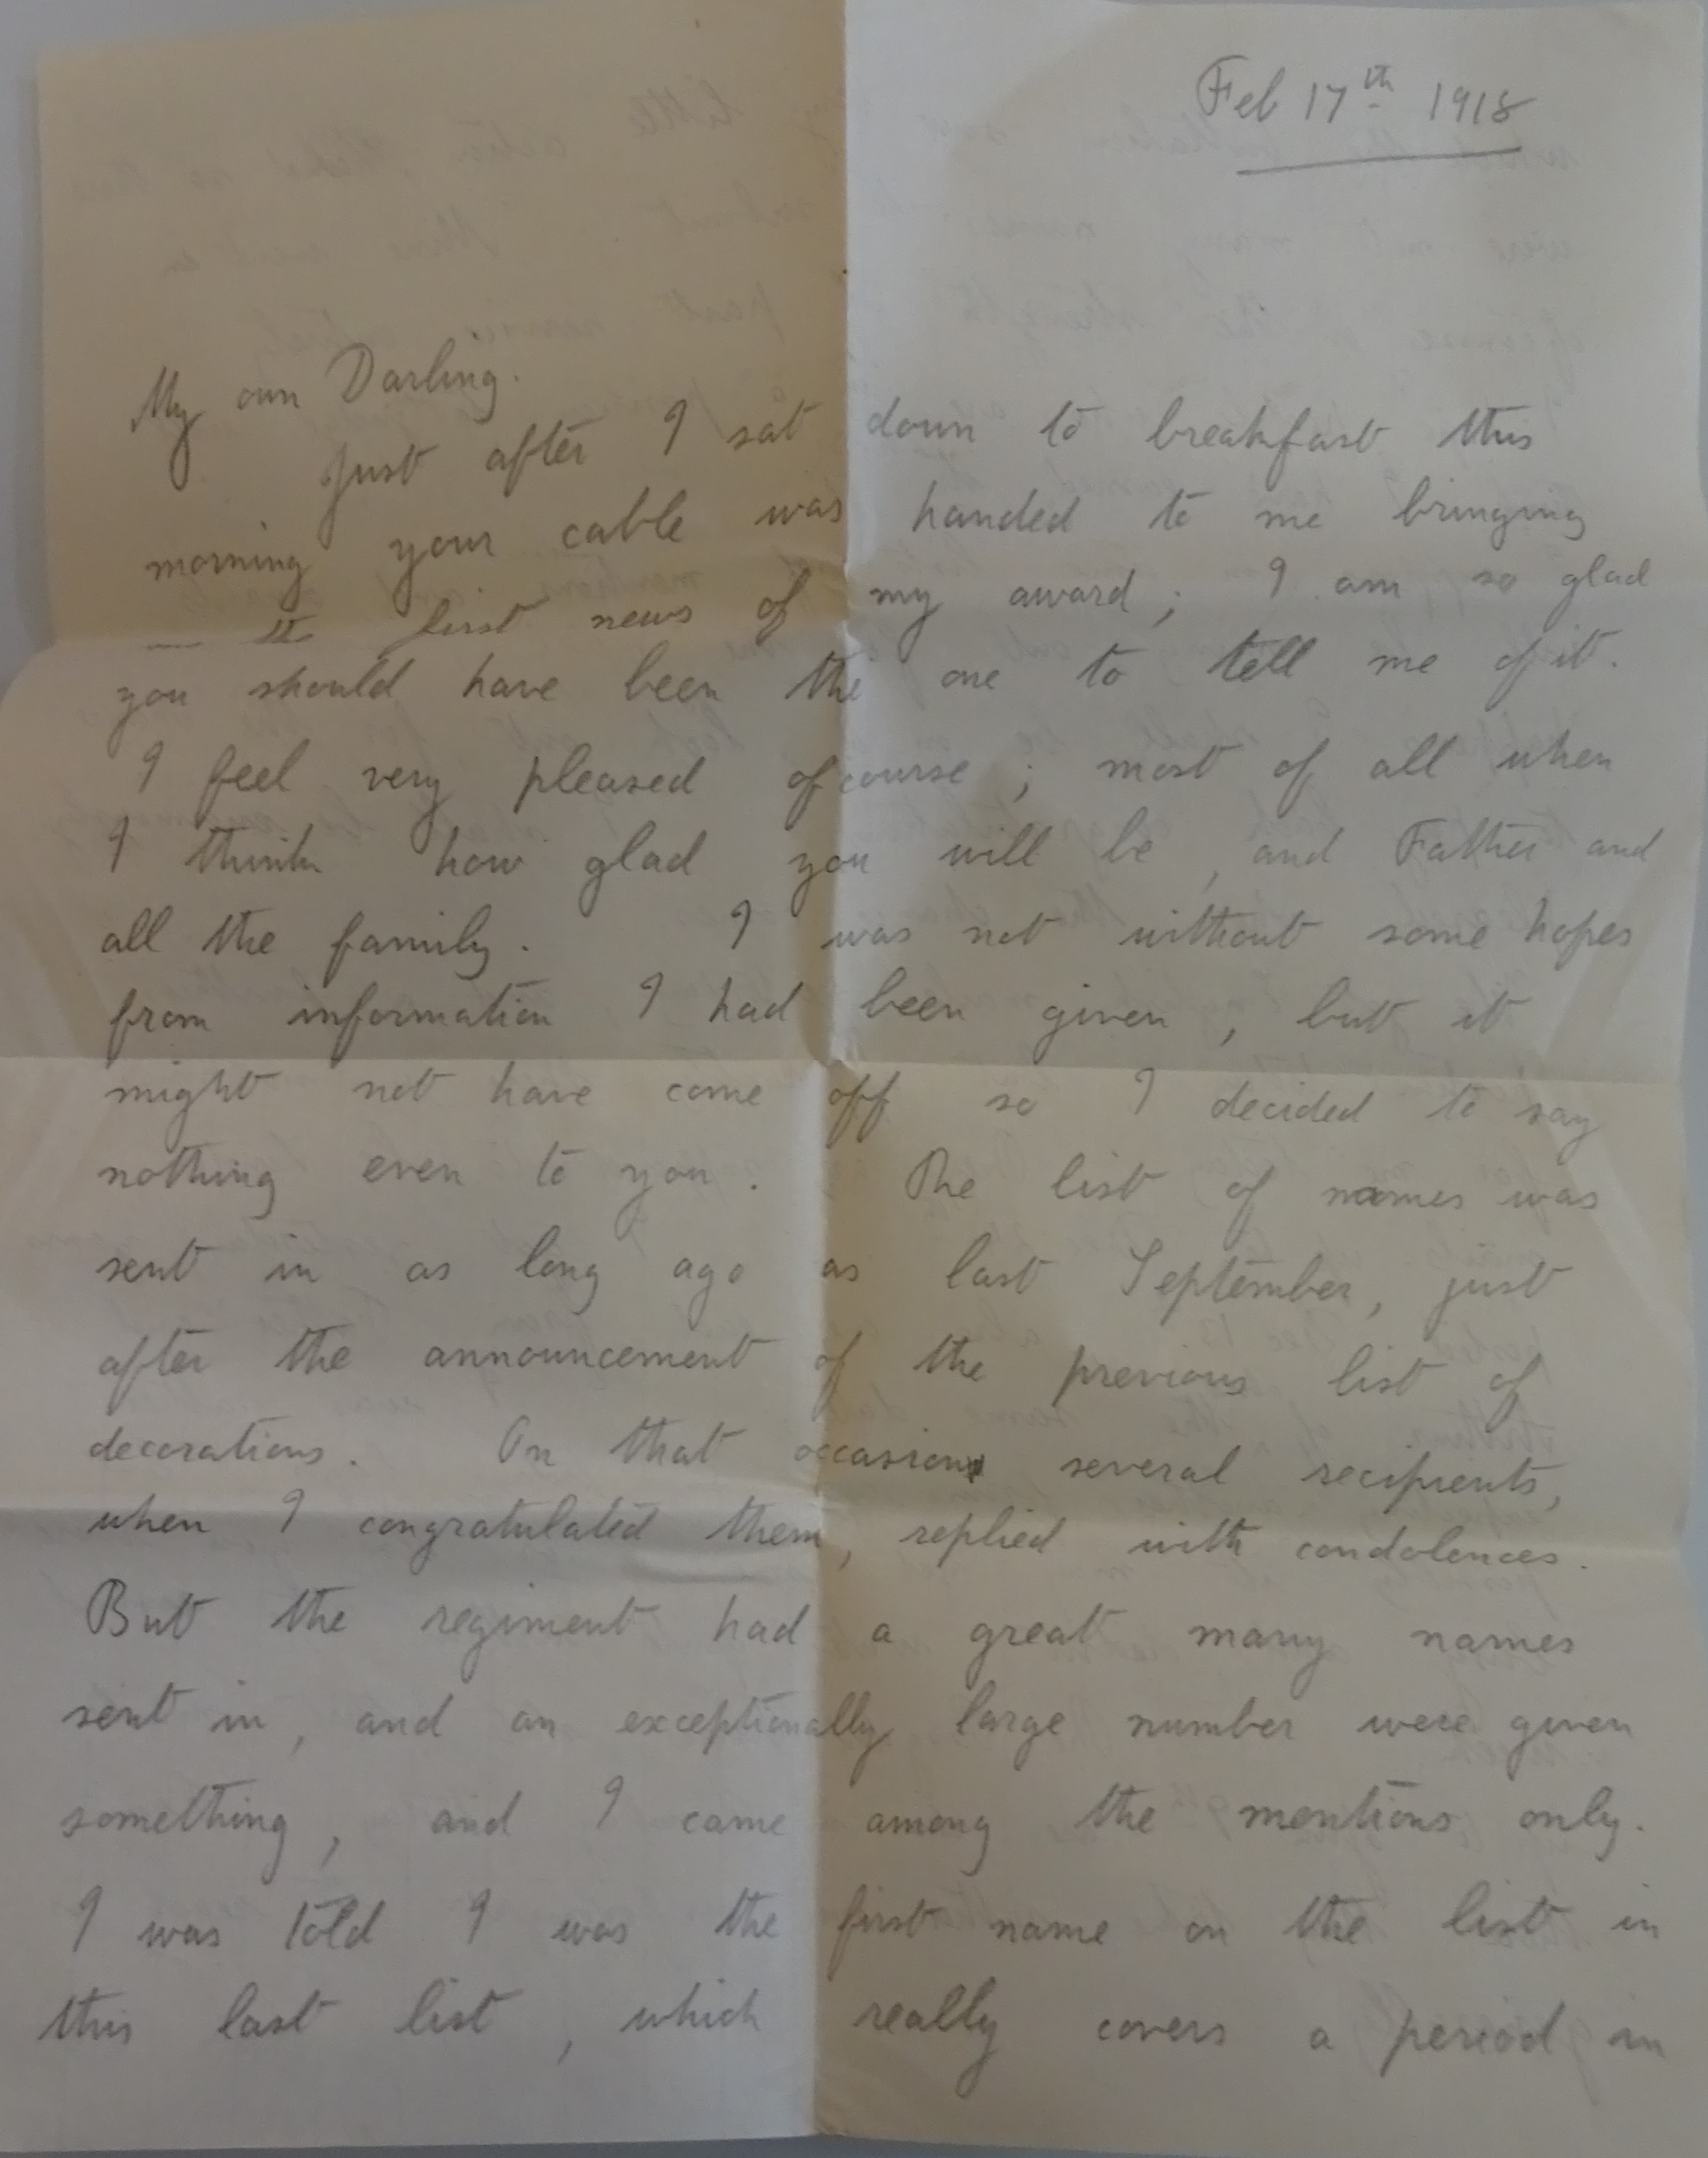 Feb 17th 1918
My own Darling.
Just after I sat down to breakfast this
morning your cable was handed to me bringing
the first news of my award; I am so glad
you should have been the one to tell me of it.
I feel very pleased of course; most of all when
I think how glad you will be, and Father and
all the family. I was not without some hopes
from information I had been given, but it
might not have come off so I decided to say
nothing even to you. The list of names was
sent in as long ago as last September, just
after the announcement of the previous list of
decorations. On that occasion several recipients,
when I congratulated them, replied with condolences.
But the regiment had a great many names
sent in, and an exceptionally large number were given
something, and I came among the mentions only.
I was told I was the first name on the list in
this last list, which really covers a period in